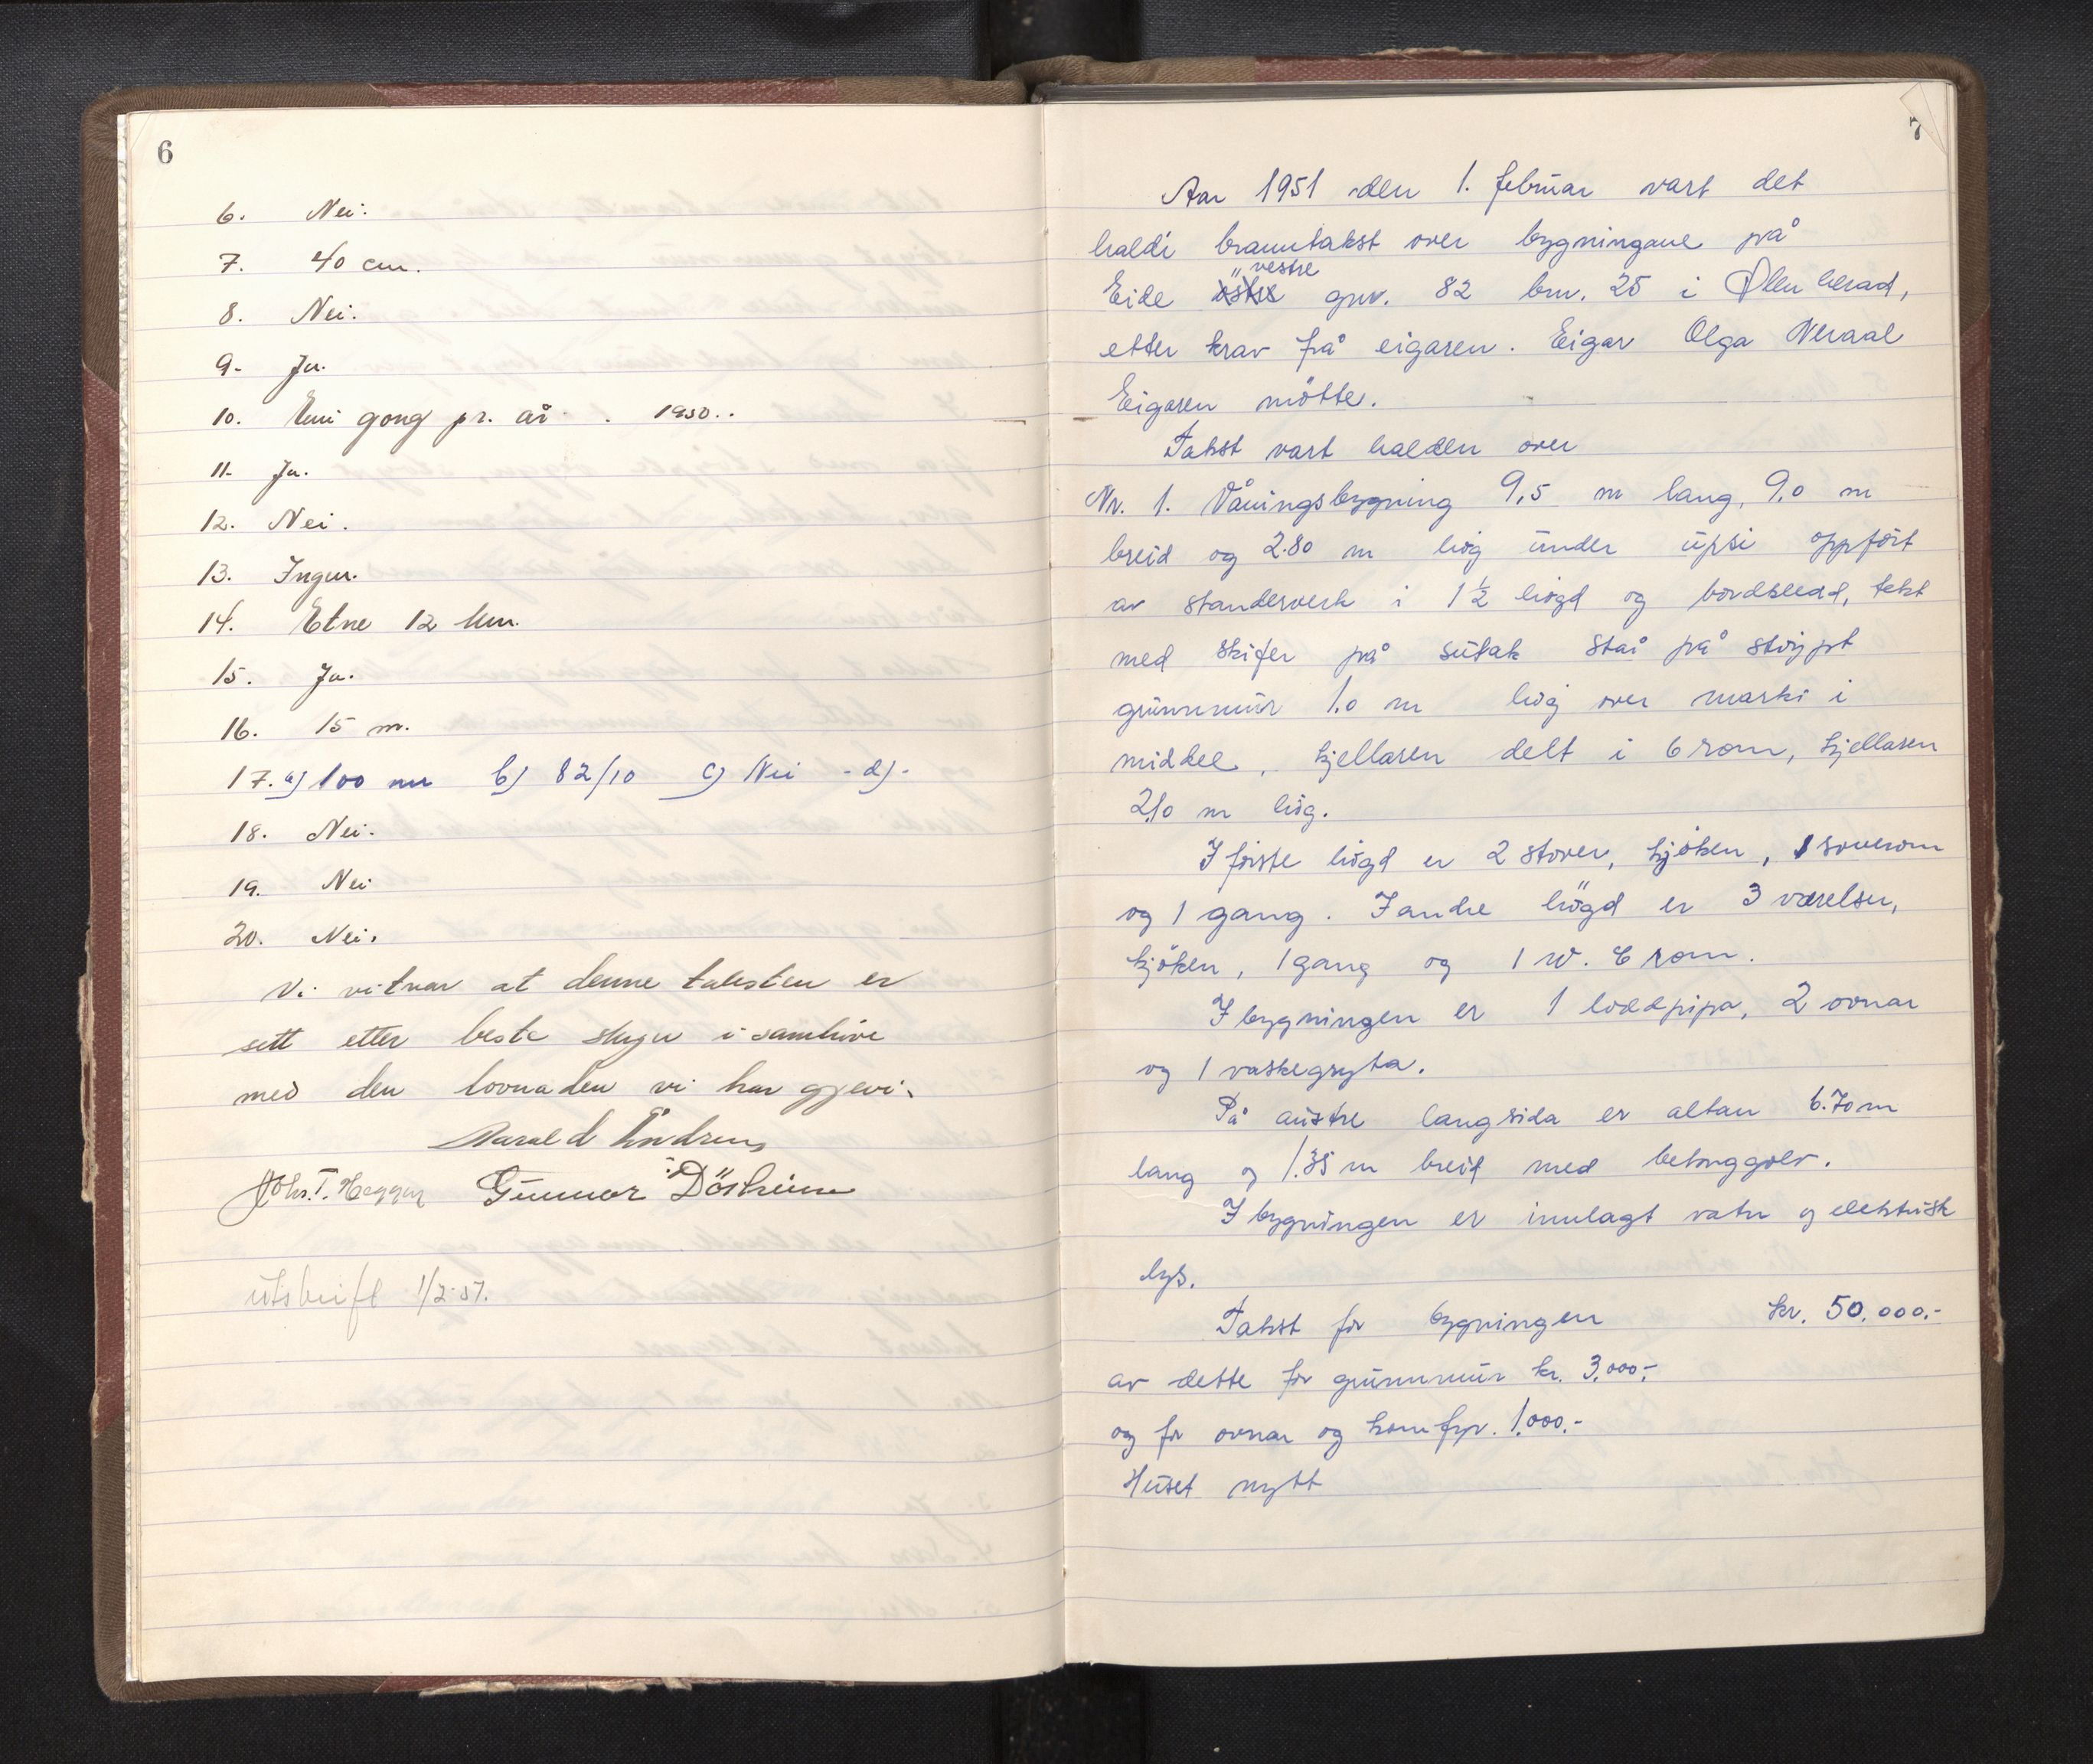 6
6. Nei.
7. 40 cm.
8. Nei.
9- Ja.
10. Ein gong pr. år . 1950..
11- Ja.
12. Nei.
13. Ingen.
14. Etne 12 km.
15. Ja.
16. 15 m.
17. a) 100 m b) 82/10 c) Nei - d) -
18. Nei.
19. Nei
20. Nei.
Vi vitnar at denne taksten er
sett etter beste skyn i samhøve
med den lovnaden vi har gjevi.
Johs. T. Gunnar
utskrift 1/2-51.
7
Aar 1951 den 1. februar vart det
haldi branntakst over bygningane på
Eide östre vestre gnr. 82 bnr. 25 i Ølen herad,
etter krav frå eigaren. Eigar Olga Neraal
Eigaren mötte.
Takst vart halden over
Nr. 1. Våningsbygning 9,5 m lang, 9,0 m
breid og 2.80 m høg under upsi oppført
av standerverk i 1½ høgd og bordkledd, tekt
med skifer på sutak står på støypt
grunnmur 1.0 m høg over marki i
middel, kjellaren delt i 6 rom, kjellaren
2,10 m høg.
I første høgd er 2 stover, kjøken, 1 soverom
og 1 gang. I andre högd er 3 værelser,
kjöken, 1 gang og 1 W. C rom.
I bygningen er 1 loddpipa, 2 ovnar
og 1 vaskegryta.
På austre langsida er altan 6.70 m
lang og 1.35 m breid med betonggolv.
I bygningen er innlagt vatn og elektrisk
lys.
Takst for bygningen kr. 50.000.-
av dette for grunnmur kr. 3.000.-
og for ovnar og komfyr. 1.000.-
Huset nytt